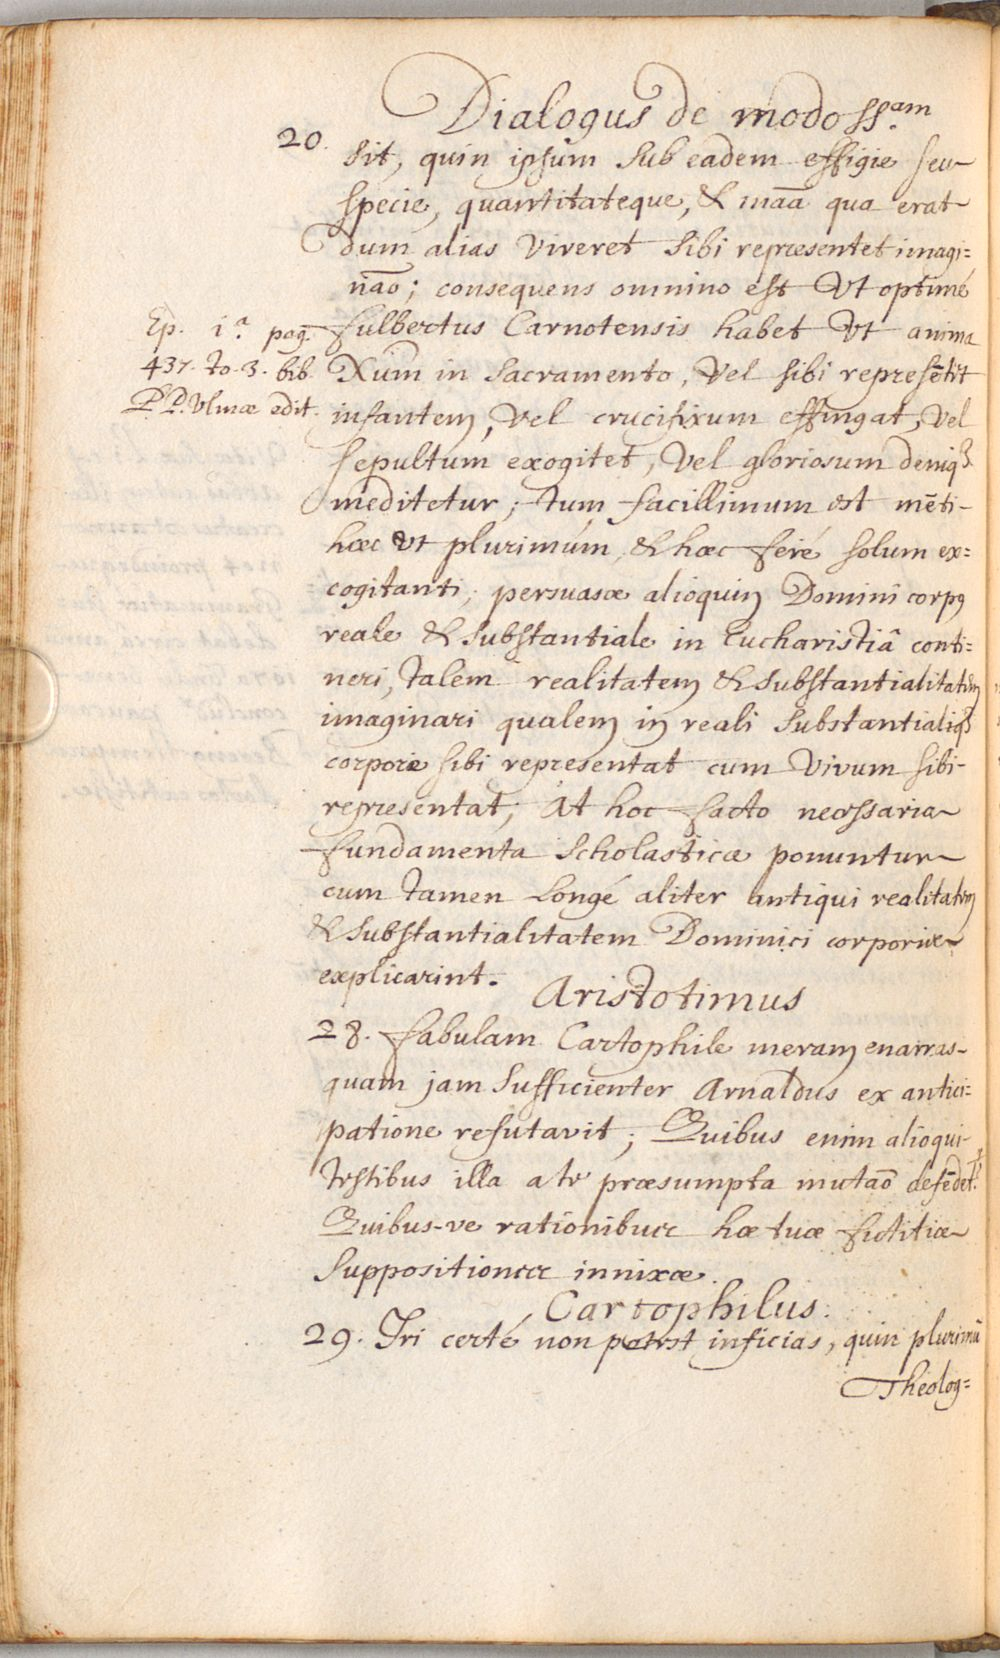 Dialogus de modo SS.am
20.
sit, quin ipsum sub eadem effigie seu
specie, quantitateque, & maã qua erat
dum alias viveret sibi repræsentet imagi=
não; consequens omnino est Vt optimé
Ep. 1.a pag.
437. to. 3. bib.
P.P. Vlmæ edit.
fulbertus Carnotensis habet Vt anima
Xum̃ in Sacramento, Vel sibi represẽtit
infantem, Vel crucifixum effingat, Vel
sepultum exogitet, Vel gloriosum deniqꝫ
meditetur; tum facillimum est mẽti-
hæc Vt plurimúm, & hæc feré solum ex=
cogitanti, persuasæ alioquin Domini corpꝯ
reale & substantiale in Eucharistiâ conti=
neri, talem realitatem & substantialitatem
imaginari qualem in reali substantialiqꝫ
corpore sibi representat cum Vivum sibi-
representat; At hoc facto necessaria
fundamenta Scholasticæ ponuntur
cum tamen Longé aliter antiqui realitatem
& substantialitatem Dominici corporis
explicarint.
Aristotimus
28. fabulam Cartophile meram enarras-
quam jam sufficienter Arnaldus ex antici=
patione refutavit; Quibus enim alioqui-
testibus illa a te præsumpta mutaõ defẽdet.r
Quibus-ve rationibus hæ tuæ fictitiæ
suppositiones innixæ.
Cartophilus.
29. Iri certé non potest inficias, quin plurimũ
Theolog=